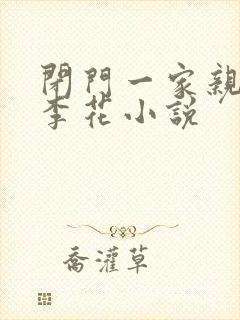 閉門一家親
李花小説
喬灌草